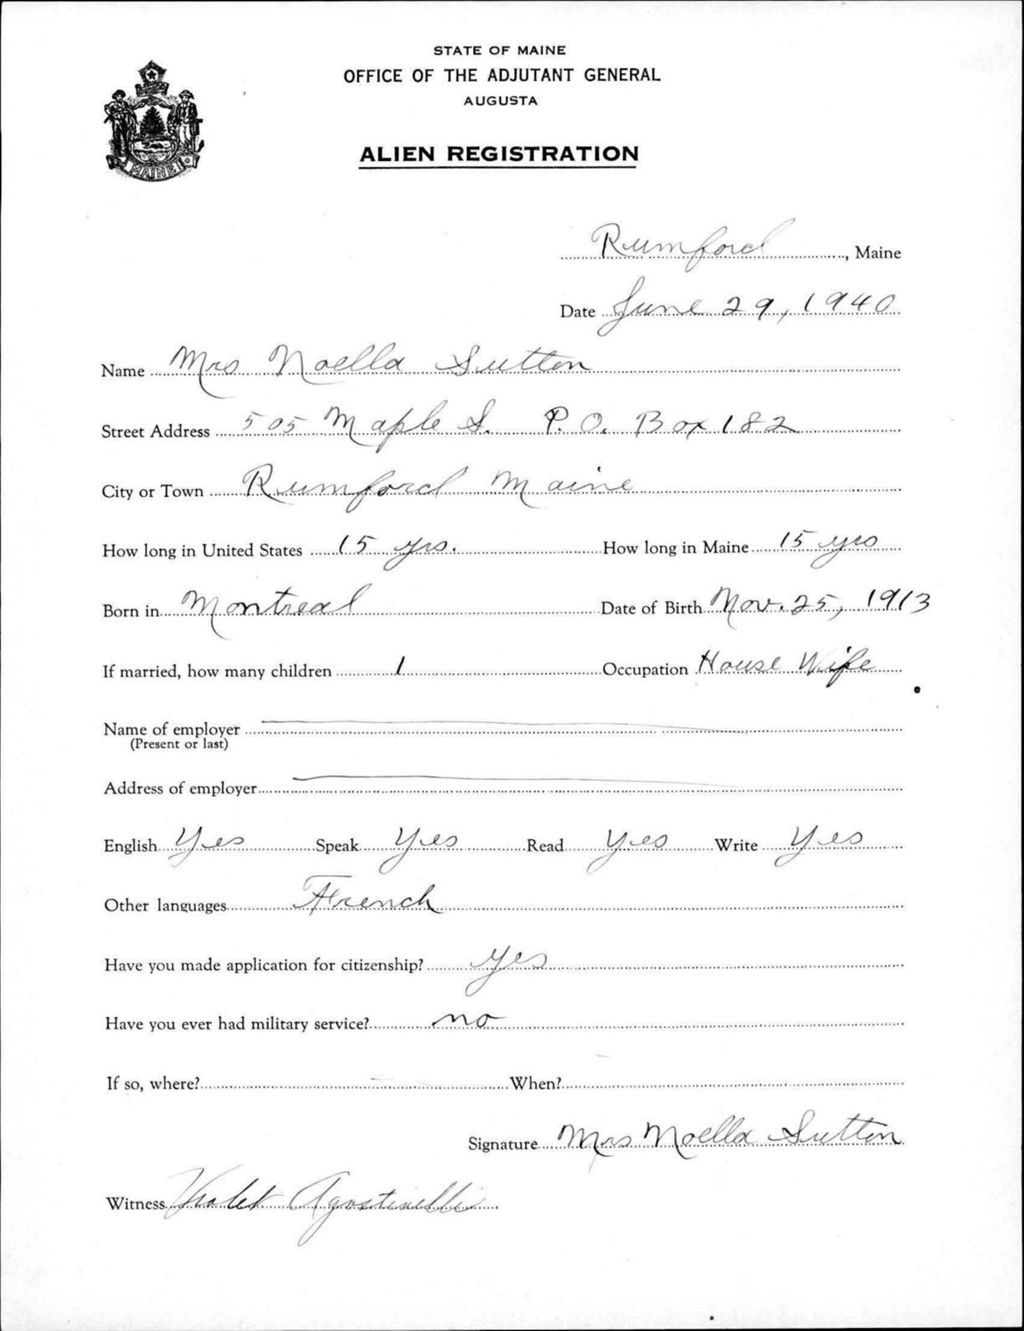 STATE OF MAINE
OFFICE OF THE ADJUTANT GENERAL
AUGUSTA
ALIEN REGISTRATION
MAINE
Rumford, Maine
Date June 29, 1940
Name Mrs Noella Sutton
Street Address 505 Maple St. P.O. Box 182
City or Town Rumford Maine
How long in United States 15 yrs. How long in Maine 15 yrs
Born in Montreal Date of Birth Nov. 25, 1913
If married, how many children 1 Occupation House Wife
Name of employer
(Present or last)
Address of employer
English Yes Speak Yes Read Yes Write Yes
Other languages French
Have you made application for citizenship? Yes
Have you ever had military service? no
If so, where? When?
Signature Mrs Noella Sutton
Witness Violet Agostinelli